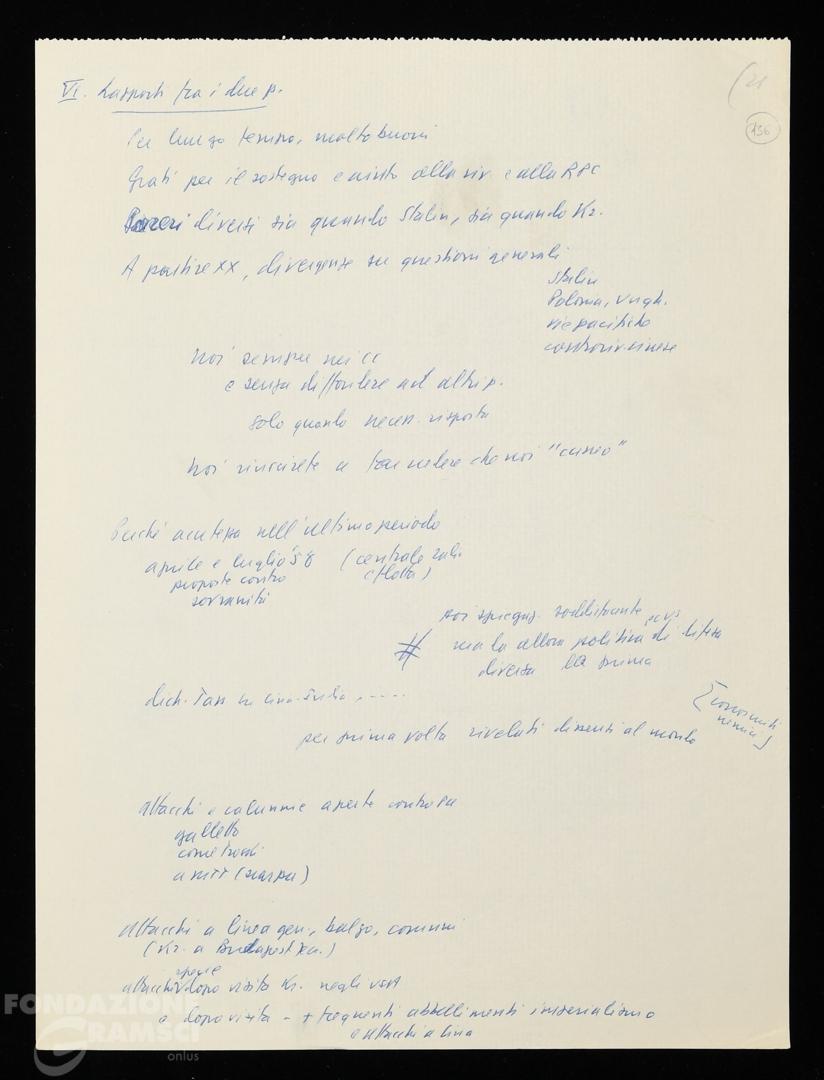 (21
136
VI. Rapporti fra i due p.
Per lungo tempo, molto buoni
Grati per il sostegno e aiuto alla riv. e alla RPC
Pareri diversi sia quando Stalin, sia quando Kr.
A partire XX, divergenze su questioni generali
Stalin
Polonia, Ungh.
via pacifica
controriv. cinese
Noi sempre nei CC
e senza diffondere ad altri p.
solo quando necess. risposta
Noi a far vedere che noi "cuneo"
Perché acutezza nell'ultimo periodo
aprile e luglio '58 (centrale radio
e flotta)
proposte contro
sovranità
poi spiegaz. soddisfacente
# ma la allora politica di difesa
diversa da prima
dich. Tass su Cina-India, .....
[conosciuti
nemici]
per prima volta rivelati dissensi al mondo
attacchi e calunnie aperte contro
galletto
come
attacchi a linea gen., balzo, comuni
(Kr. a Budapest)
specie
attacchi dopo visita Kr. negli USA
e dopo visita - + frequenti abbellimenti imperialismo
e attacchi a Cina
FONDAZIONE
GRAMSCI
onlus